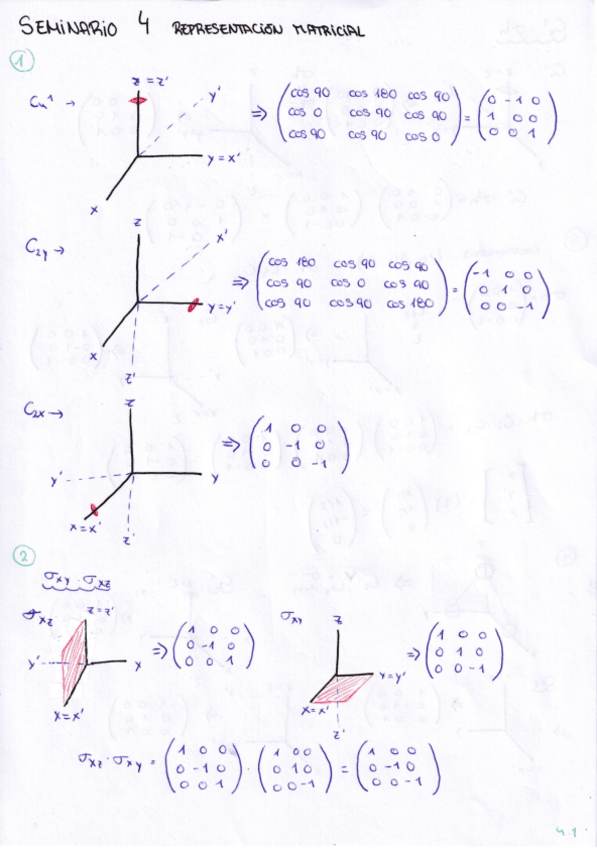 SEMINARIO 4 REPRESENTACIÓN MATRICIAL
1
C4¹ →
z = z'
y'
y = x'
x
⇒ ( cos 90 cos 180 cos 90 ) = ( 0 -1 0 )
( cos 0 cos 90 cos 90 ) ( 1 0 0 )
( cos 90 cos 90 cos 0 ) ( 0 0 1 )
C2y →
z
x'
y = y'
x
z'
⇒ ( cos 180 cos 90 cos 90 ) = ( -1 0 0 )
( cos 90 cos 0 cos 90 ) ( 0 1 0 )
( cos 90 cos 90 cos 180 ) ( 0 0 -1 )
C2x →
z
y'
y
x = x'
z'
⇒ ( 1 0 0 )
( 0 -1 0 )
( 0 0 -1 )
2
σxy · σxz
σxz
z = z'
y'
x
x = x'
⇒ ( 1 0 0 )
( 0 -1 0 )
( 0 0 1 )
σxy
z
y = y'
x = x'
z'
⇒ ( 1 0 0 )
( 0 1 0 )
( 0 0 -1 )
σxz · σxy = ( 1 0 0 ) · ( 1 0 0 ) = ( 1 0 0 )
( 0 -1 0 ) ( 0 1 0 ) ( 0 -1 0 )
( 0 0 1 ) ( 0 0 -1 ) ( 0 0 -1 )
4.1